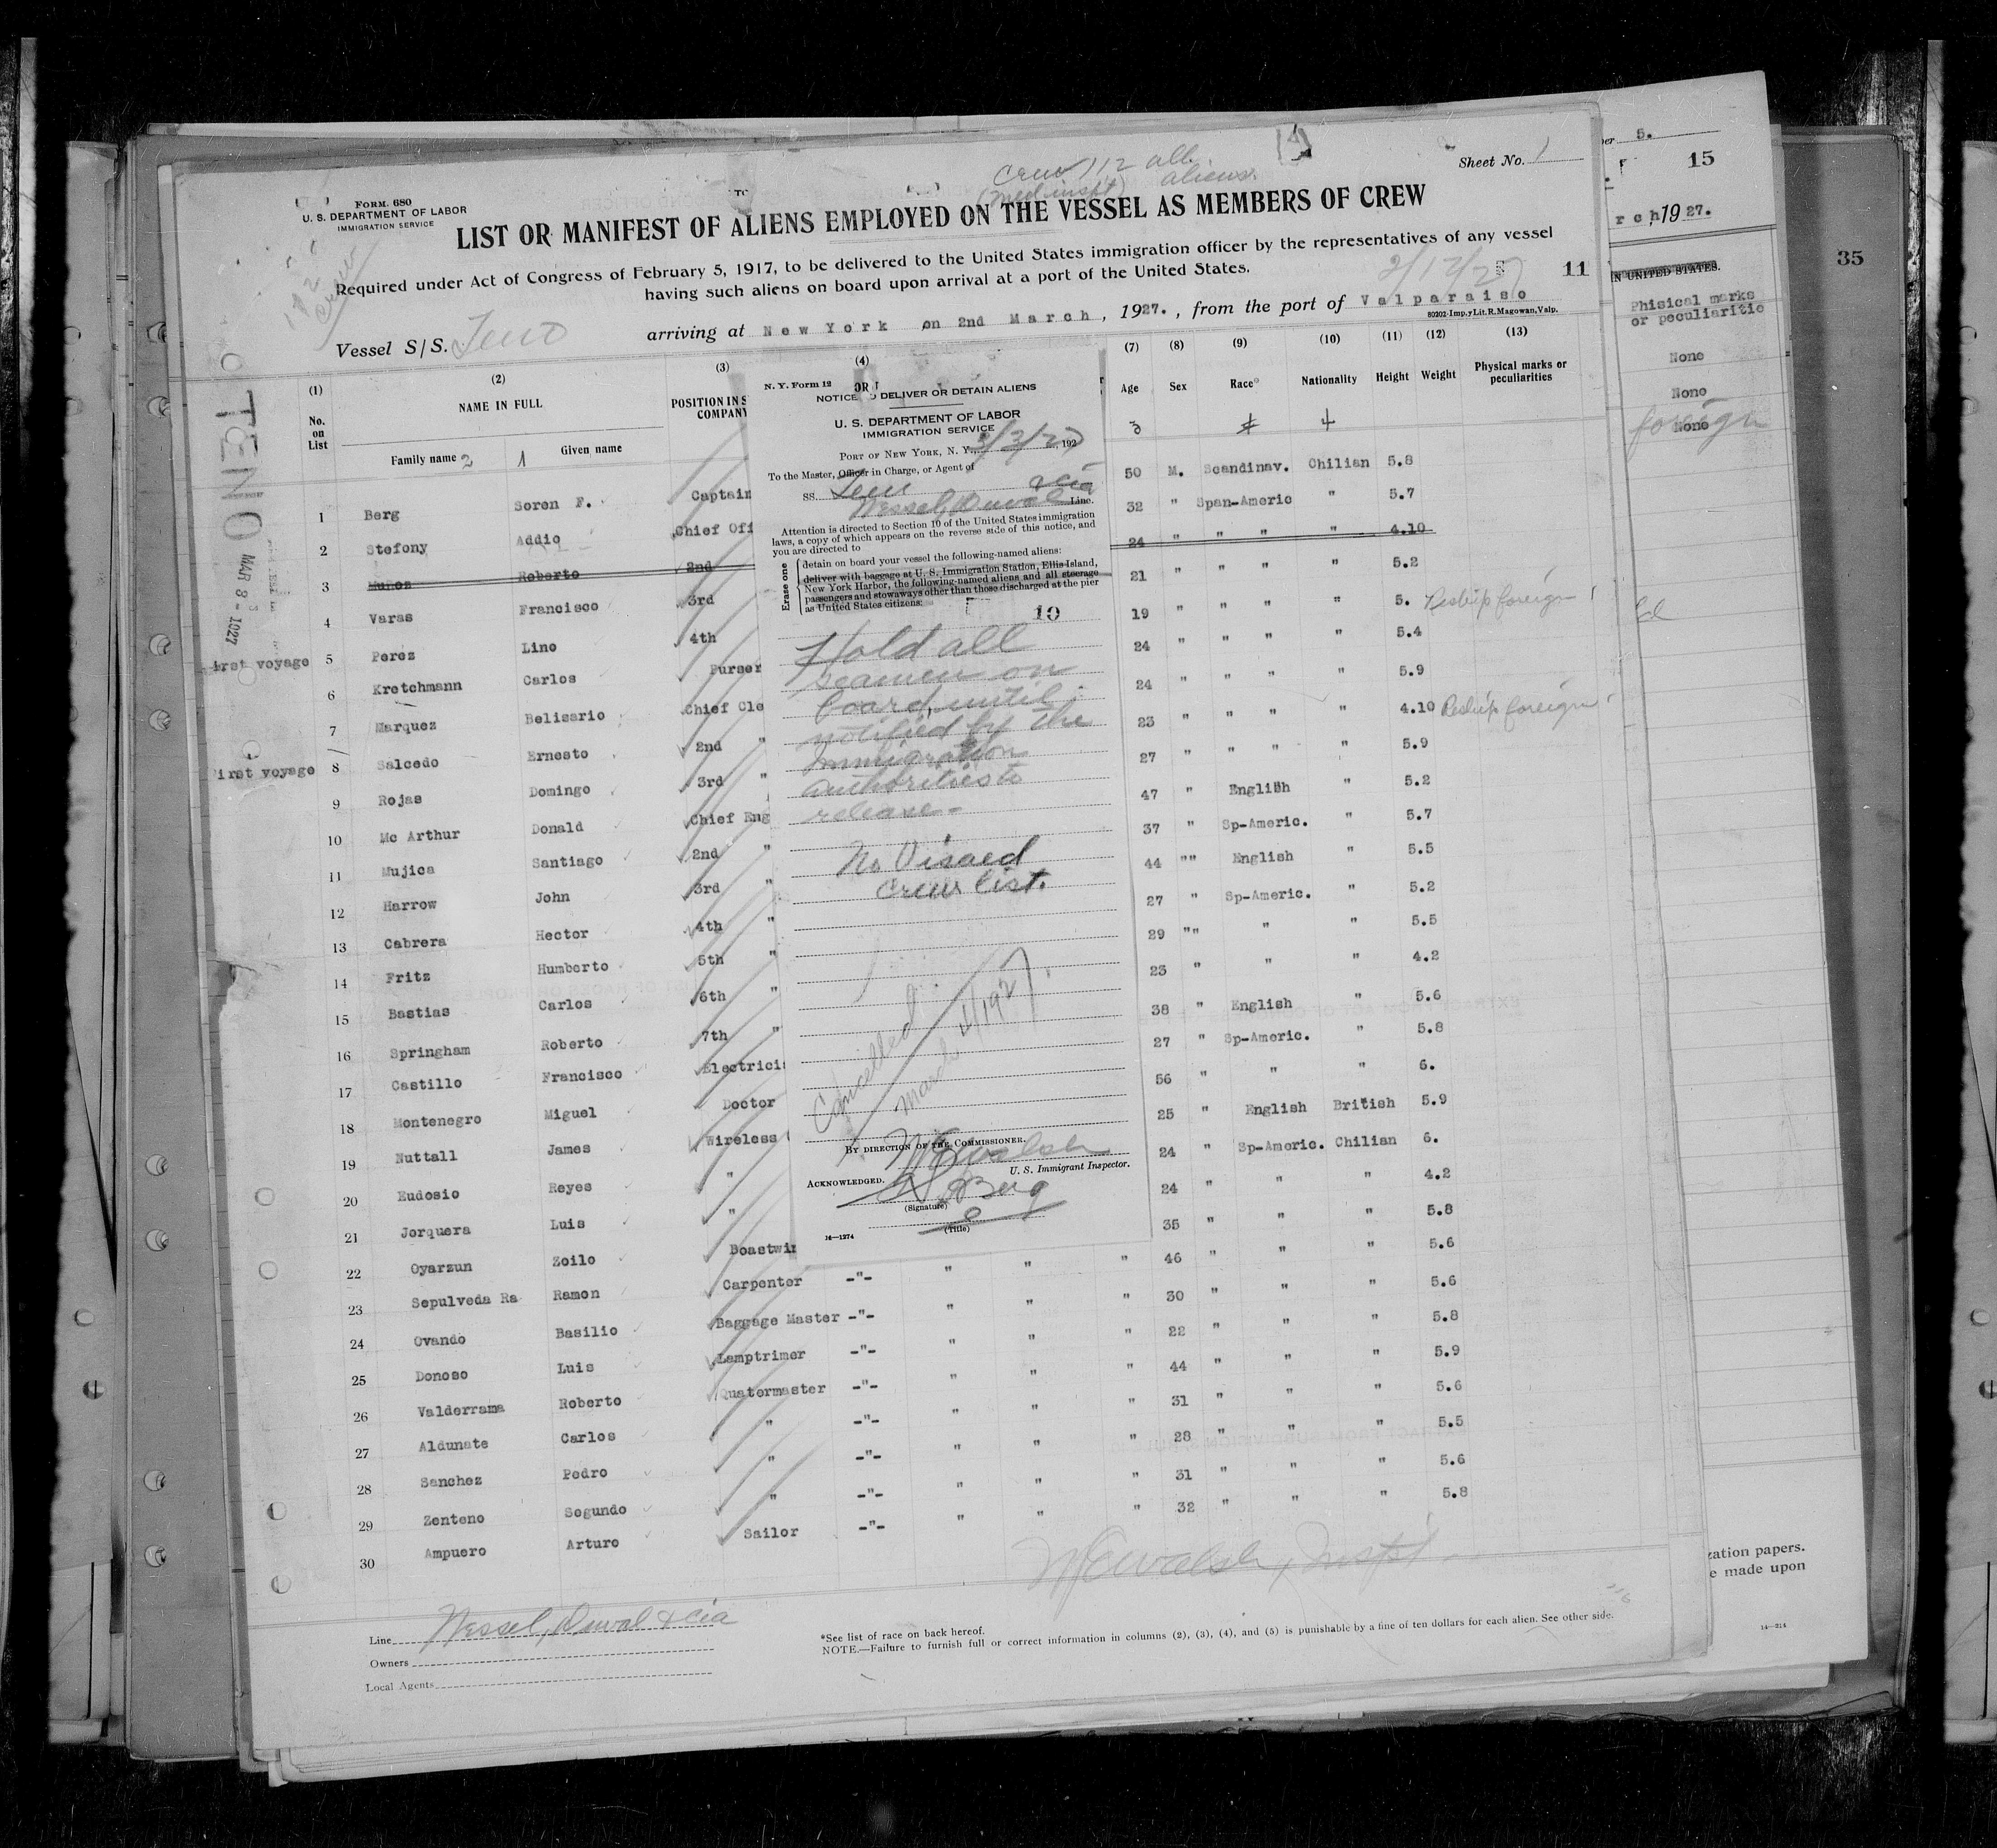 Crew 112 all
aliens.
(Med. inspt)
Sheet No. 1
Form. 680
U. S. DEPARTMENT OF LABOR
IMMIGRATION SERVICE
LIST OR MANIFEST OF ALIENS EMPLOYED ON THE VESSEL AS MEMBERS OF CREW
Required under Act of Congress of February 5, 1917, to be delivered to the United States immigration officer by the representatives of any vessel
having such aliens on board upon arrival at a port of the United States.
11
Vessel S/S. Teno arriving at New York on 2nd March, 1927., from the port of Valparaiso
80202-Imp.y Lit.R.Magowan, Valp.
TENO
MAR 8 - 1927
(1) (2) (3) (4) (7) (8) (9) (10) (11) (12) (13)
No. on List NAME IN FULL POSITION IN S COMPANY Age Sex Race* Nationality Height Weight Physical marks or peculiarities
Family name 2 1 Given name
1 Berg Soren F. Captain 50 M. Scandinav. Chilian 5.8
2 Stefony Addio Chief Off 32 " Span-Americ " 5.7
3 Muñoz Roberto 2nd 24 " " " " 4.10
4 Varas Francisco 3rd 21 " " " " 5.2
First voyage 5 Perez Lino 4th 19 " " " " 5. Reship foreign
6 Kretchmann Carlos Purser 24 " " " " 5.4
7 Marquez Belisario Chief Cle 24 " " " " 5.9
First voyage 8 Salcedo Ernesto 2nd " 23 " " " " 4.10 Reship foreign
9 Rojas Domingo 3rd " 27 " " " " 5.9
10 Mc Arthur Donald Chief Eng 47 " English " 5.2
11 Mujica Santiago 2nd " 37 " Sp-Americ. " 5.7
12 Harrow John 3rd " 44 "" English " 5.5
13 Cabrera Hector 4th " 27 " Sp-Americ. " 5.2
14 Fritz Humberto 5th " 29 "" " " 5.5
15 Bastias Carlos 6th " 23 " " " 4.2
16 Springham Roberto 7th " 38 " English " 5.6
17 Castillo Francisco Electrici 27 " Sp-Americ. " 5.8
18 Montenegro Miguel Doctor 56 " " " 6.
19 Nuttall James Wireless 25 " English British 5.9
20 Eudosio Reyes " 24 " Sp-Americ. Chilian 6.
21 Jorquera Luis " 24 " " " 4.2
22 Oyarzun Zoilo Boastwi 35 " " " 5.8
23 Sepulveda Ra Ramon Carpenter -"- " " " 46 " " " 5.6
24 Ovando Basilio Baggage Master -"- " " " 30 " " " 5.6
25 Donoso Luis Lamptrimer -"- " " " 22 " " " 5.8
26 Valderrama Roberto Quatermaster -"- " " " 44 " " " 5.9
27 Aldunate Carlos " -"- " " " 31 " " " 5.6
28 Sanchez Pedro " -"- " " " 28 " " " 5.5
29 Zenteno Segundo " -"- " " " 31 " " " 5.6
30 Ampuero Arturo Sailor -"- " " " 32 " " " 5.8
N. Y. Form 12
NOTICE TO DELIVER OR DETAIN ALIENS
U. S. DEPARTMENT OF LABOR
IMMIGRATION SERVICE
Port of New York, N. Y., 3/3/27, 192
To the Master, Officer in Charge, or Agent of
SS. Teno
Wessel, Duval & Cia Line.
Attention is directed to Section 10 of the United States immigration
laws, a copy of which appears on the reverse side of this notice, and
you are directed to
Erase one
detain on board your vessel the following-named aliens:
deliver with baggage at U. S. Immigration Station, Ellis Island,
New York Harbor, the following-named aliens and all steerage
passengers and stowaways other than those discharged at the pier
as United States citizens:
10
Hold all
seamen on
board until
notified by the
Immigration
authorities to
release-
No Visaed
crew list.
Cancelled
March 4/1927.
By direction of the Commissioner.
W E Walsh
U. S. Immigrant Inspector.
Acknowledged.
S Berg
(Signature)
(Title)
14—1274
W E Walsh, Inspt.
Line Wessel, Duval & Cia
Owners
Local Agents
*See list of race on back hereof.
NOTE.—Failure to furnish full or correct information in columns (2), (3), (4), and (5) is punishable by a fine of ten dollars for each alien. See other side.
5.
15
rch 1927.
IN UNITED STATES.
Phisical marks
or peculiaritie
None
None
None
foreign
35
zation papers.
e made upon
14—214